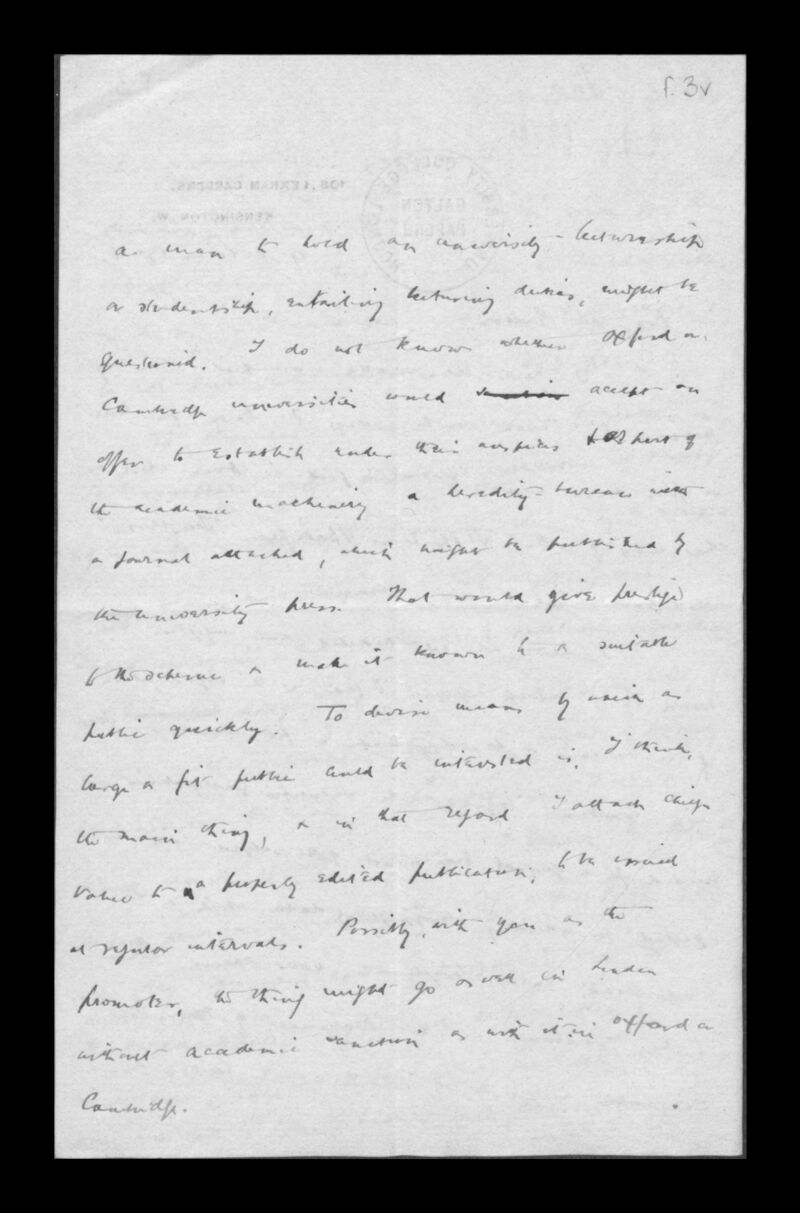 f. 3v
108, LEXHAM GARDENS,
KENSINGTON, W.
a man to hold an university lectureship
or studentship, entailing lecturing duties, might be
questioned. I do not know whether Oxford or
Cambridge universities would accept an
offer to establish under their auspices & as part of
the academic machinery a heredity-bureau with
a journal attached, which might be published by
the university press. That would give prestige
to the scheme & make it known to a suitable
public quickly. To devise means by which as
large & fit public could be interested is, I think,
the main thing, & in that regard I attach chief
value to a properly edited publication, to be issued
at regular intervals. Possibly, with you as the
promoter, the thing might go as well in London
without academic sanction as with it in Oxford or
Cambridge.